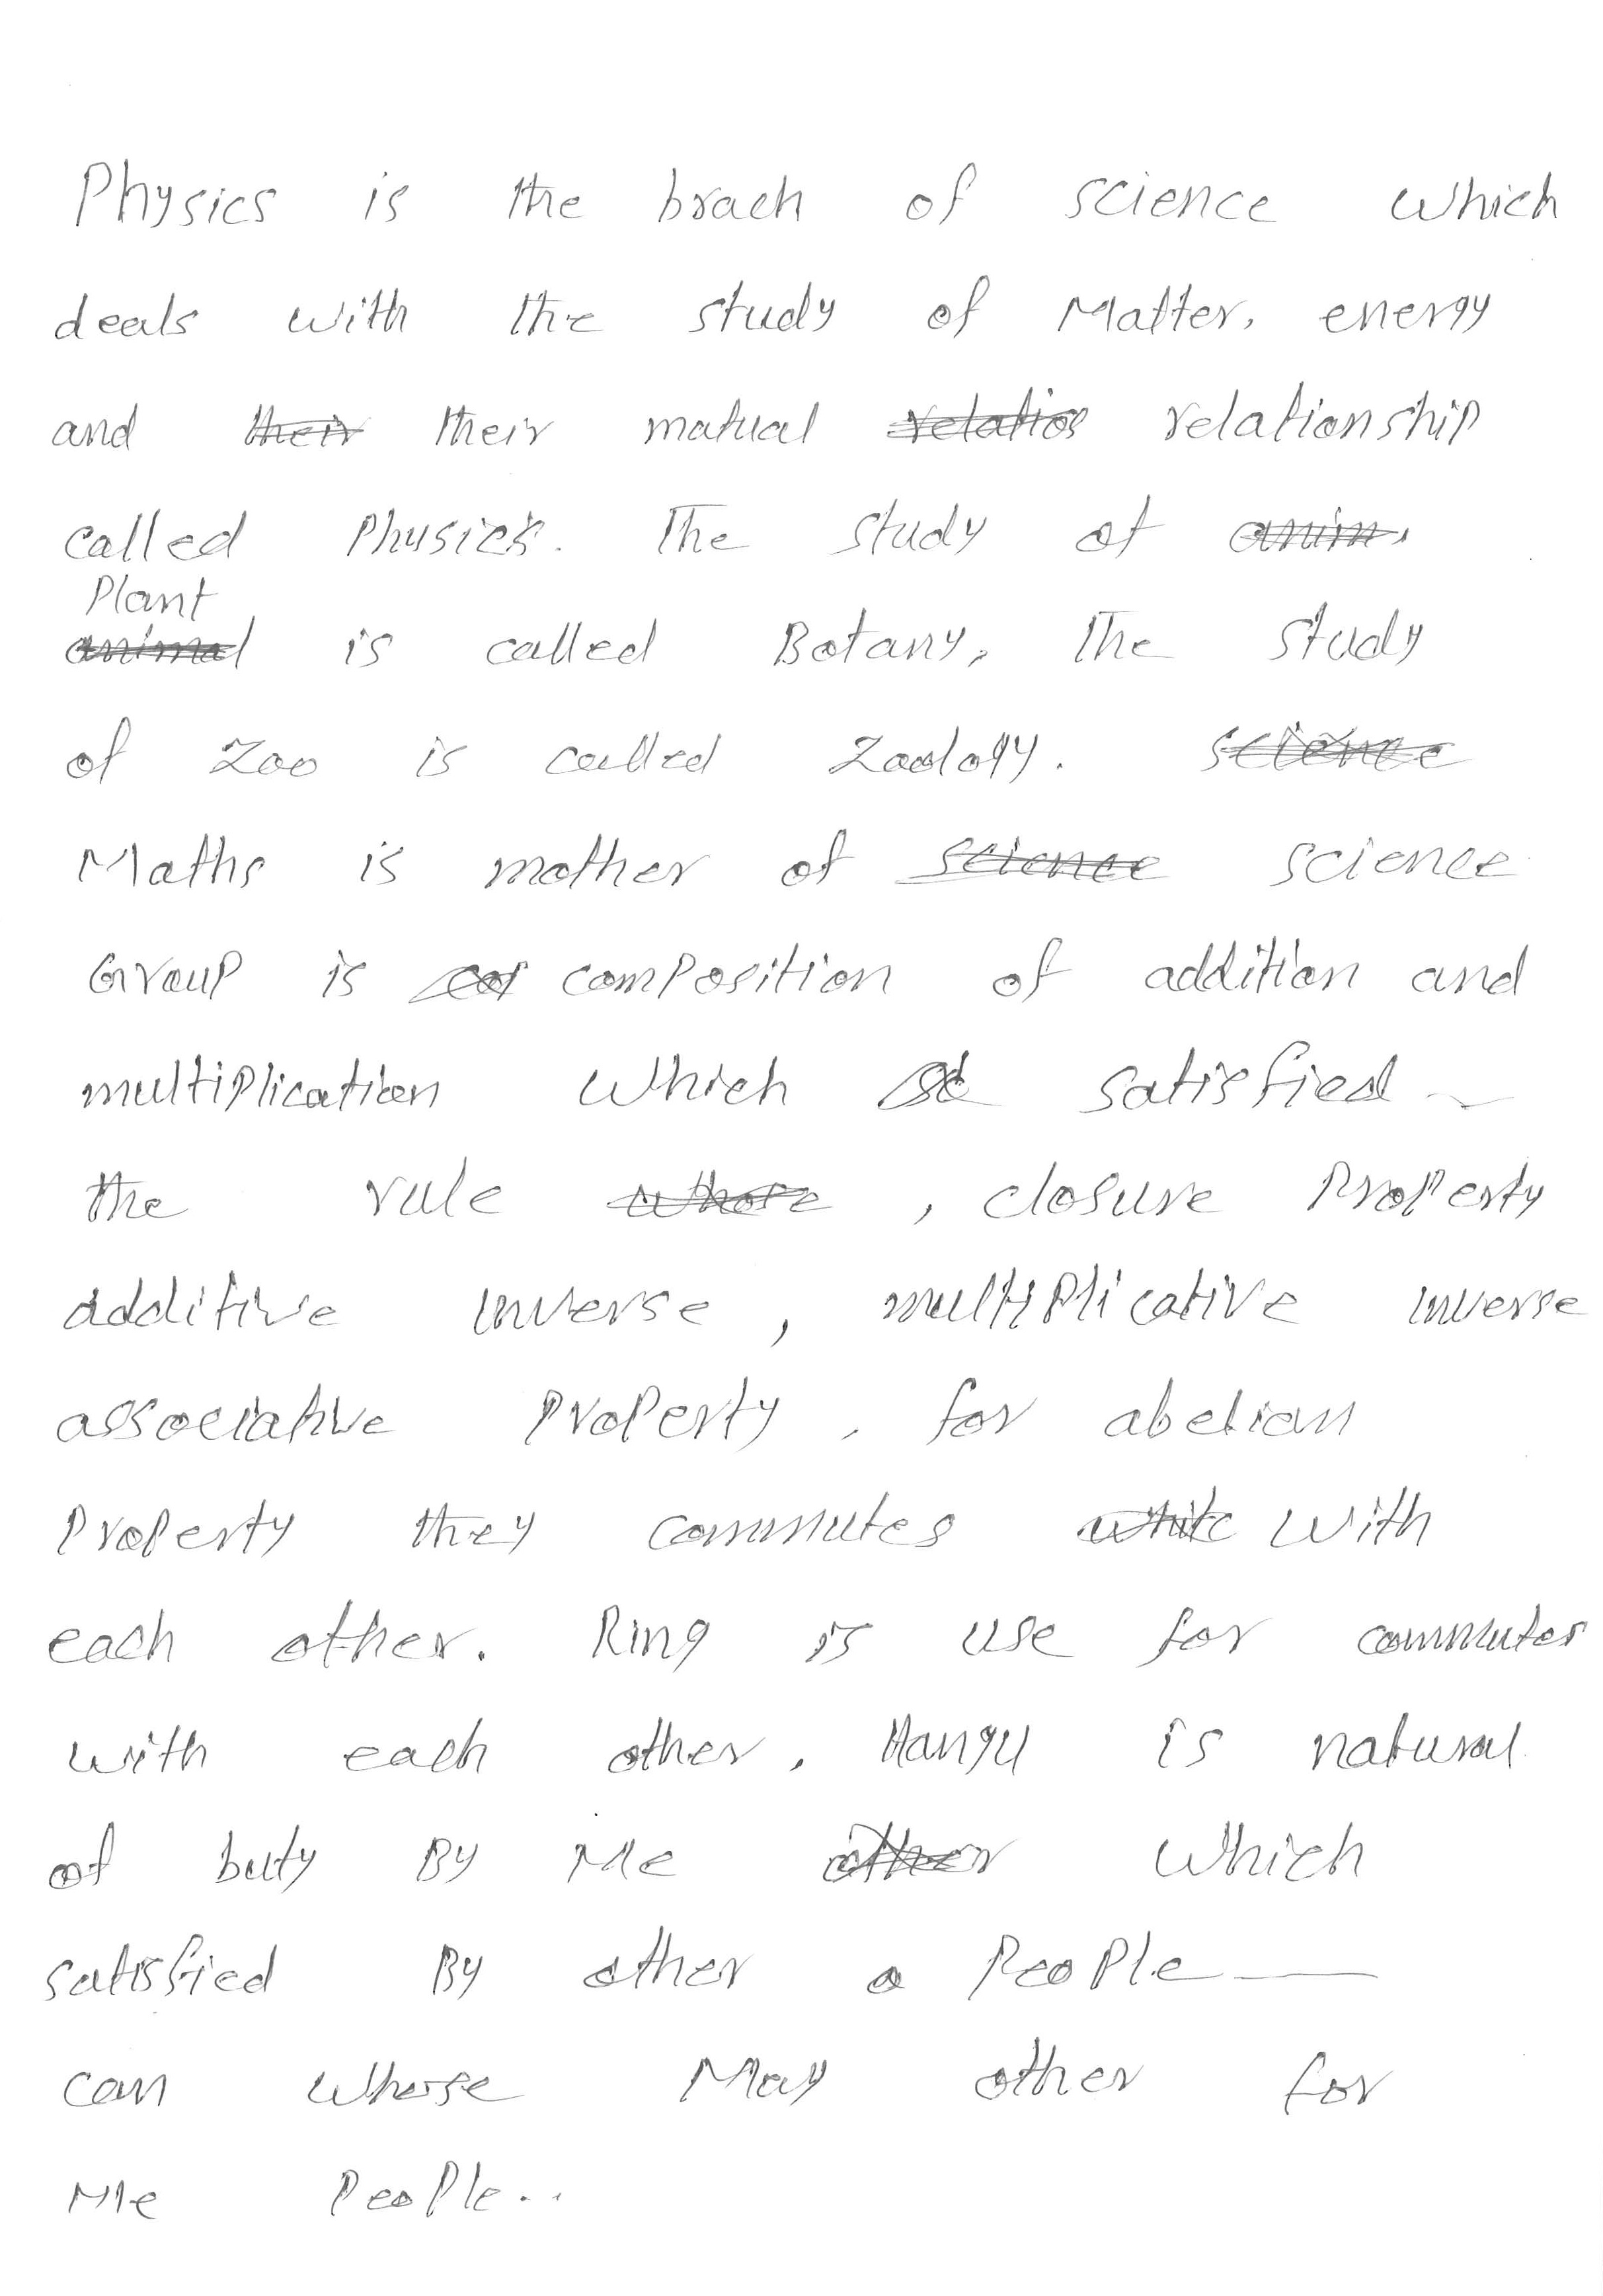 Physics is the brach of science which
deals with the study of Matter, energy
and their their matual relatios relationship
called Physics. The study of anim.
Plant
animal is called Botany, The study
of Zoo is called Zoology. science
Maths is mother of science science
Group is composition of addition and
multiplication which satisfied
the rule where , closure Property
additive inverse , multiplicative inverse
associative Property , for abelian
Property they commutes white with
each other. Ring is use for commutes
with each other. Hangu is natural
of buty By Me other which
satisfied By other a People
can wherse May other for
Me People..